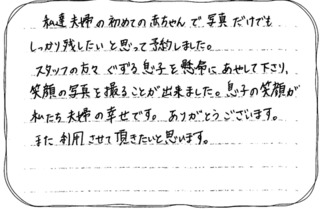 私達夫婦の初めての赤ちゃんで写真だけでも
しっかり残したいと思って予約しました。
スタッフの方々ぐずる息子を懸命にあやして下さり、
笑顔の写真を撮ることが出来ました。息子の笑顔が
私たち夫婦の幸せです。ありがとうございます。
また利用させて頂きたいと思います。